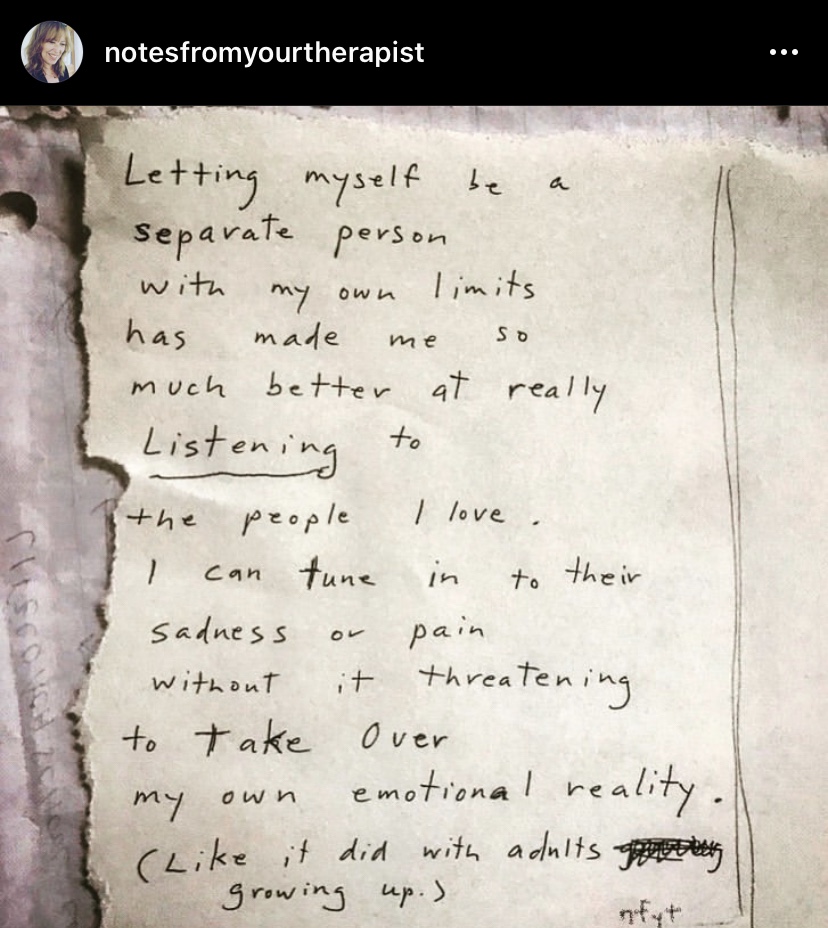 notesfromyourtherapist
Letting myself be a
separate person
with my own limits
has made me so
much better at really
Listening to
the people I love.
I can tune in to their
sadness or pain
without it threatening
to Take Over
my own emotional reality.
(Like it did with adults
growing up.)
nfyt